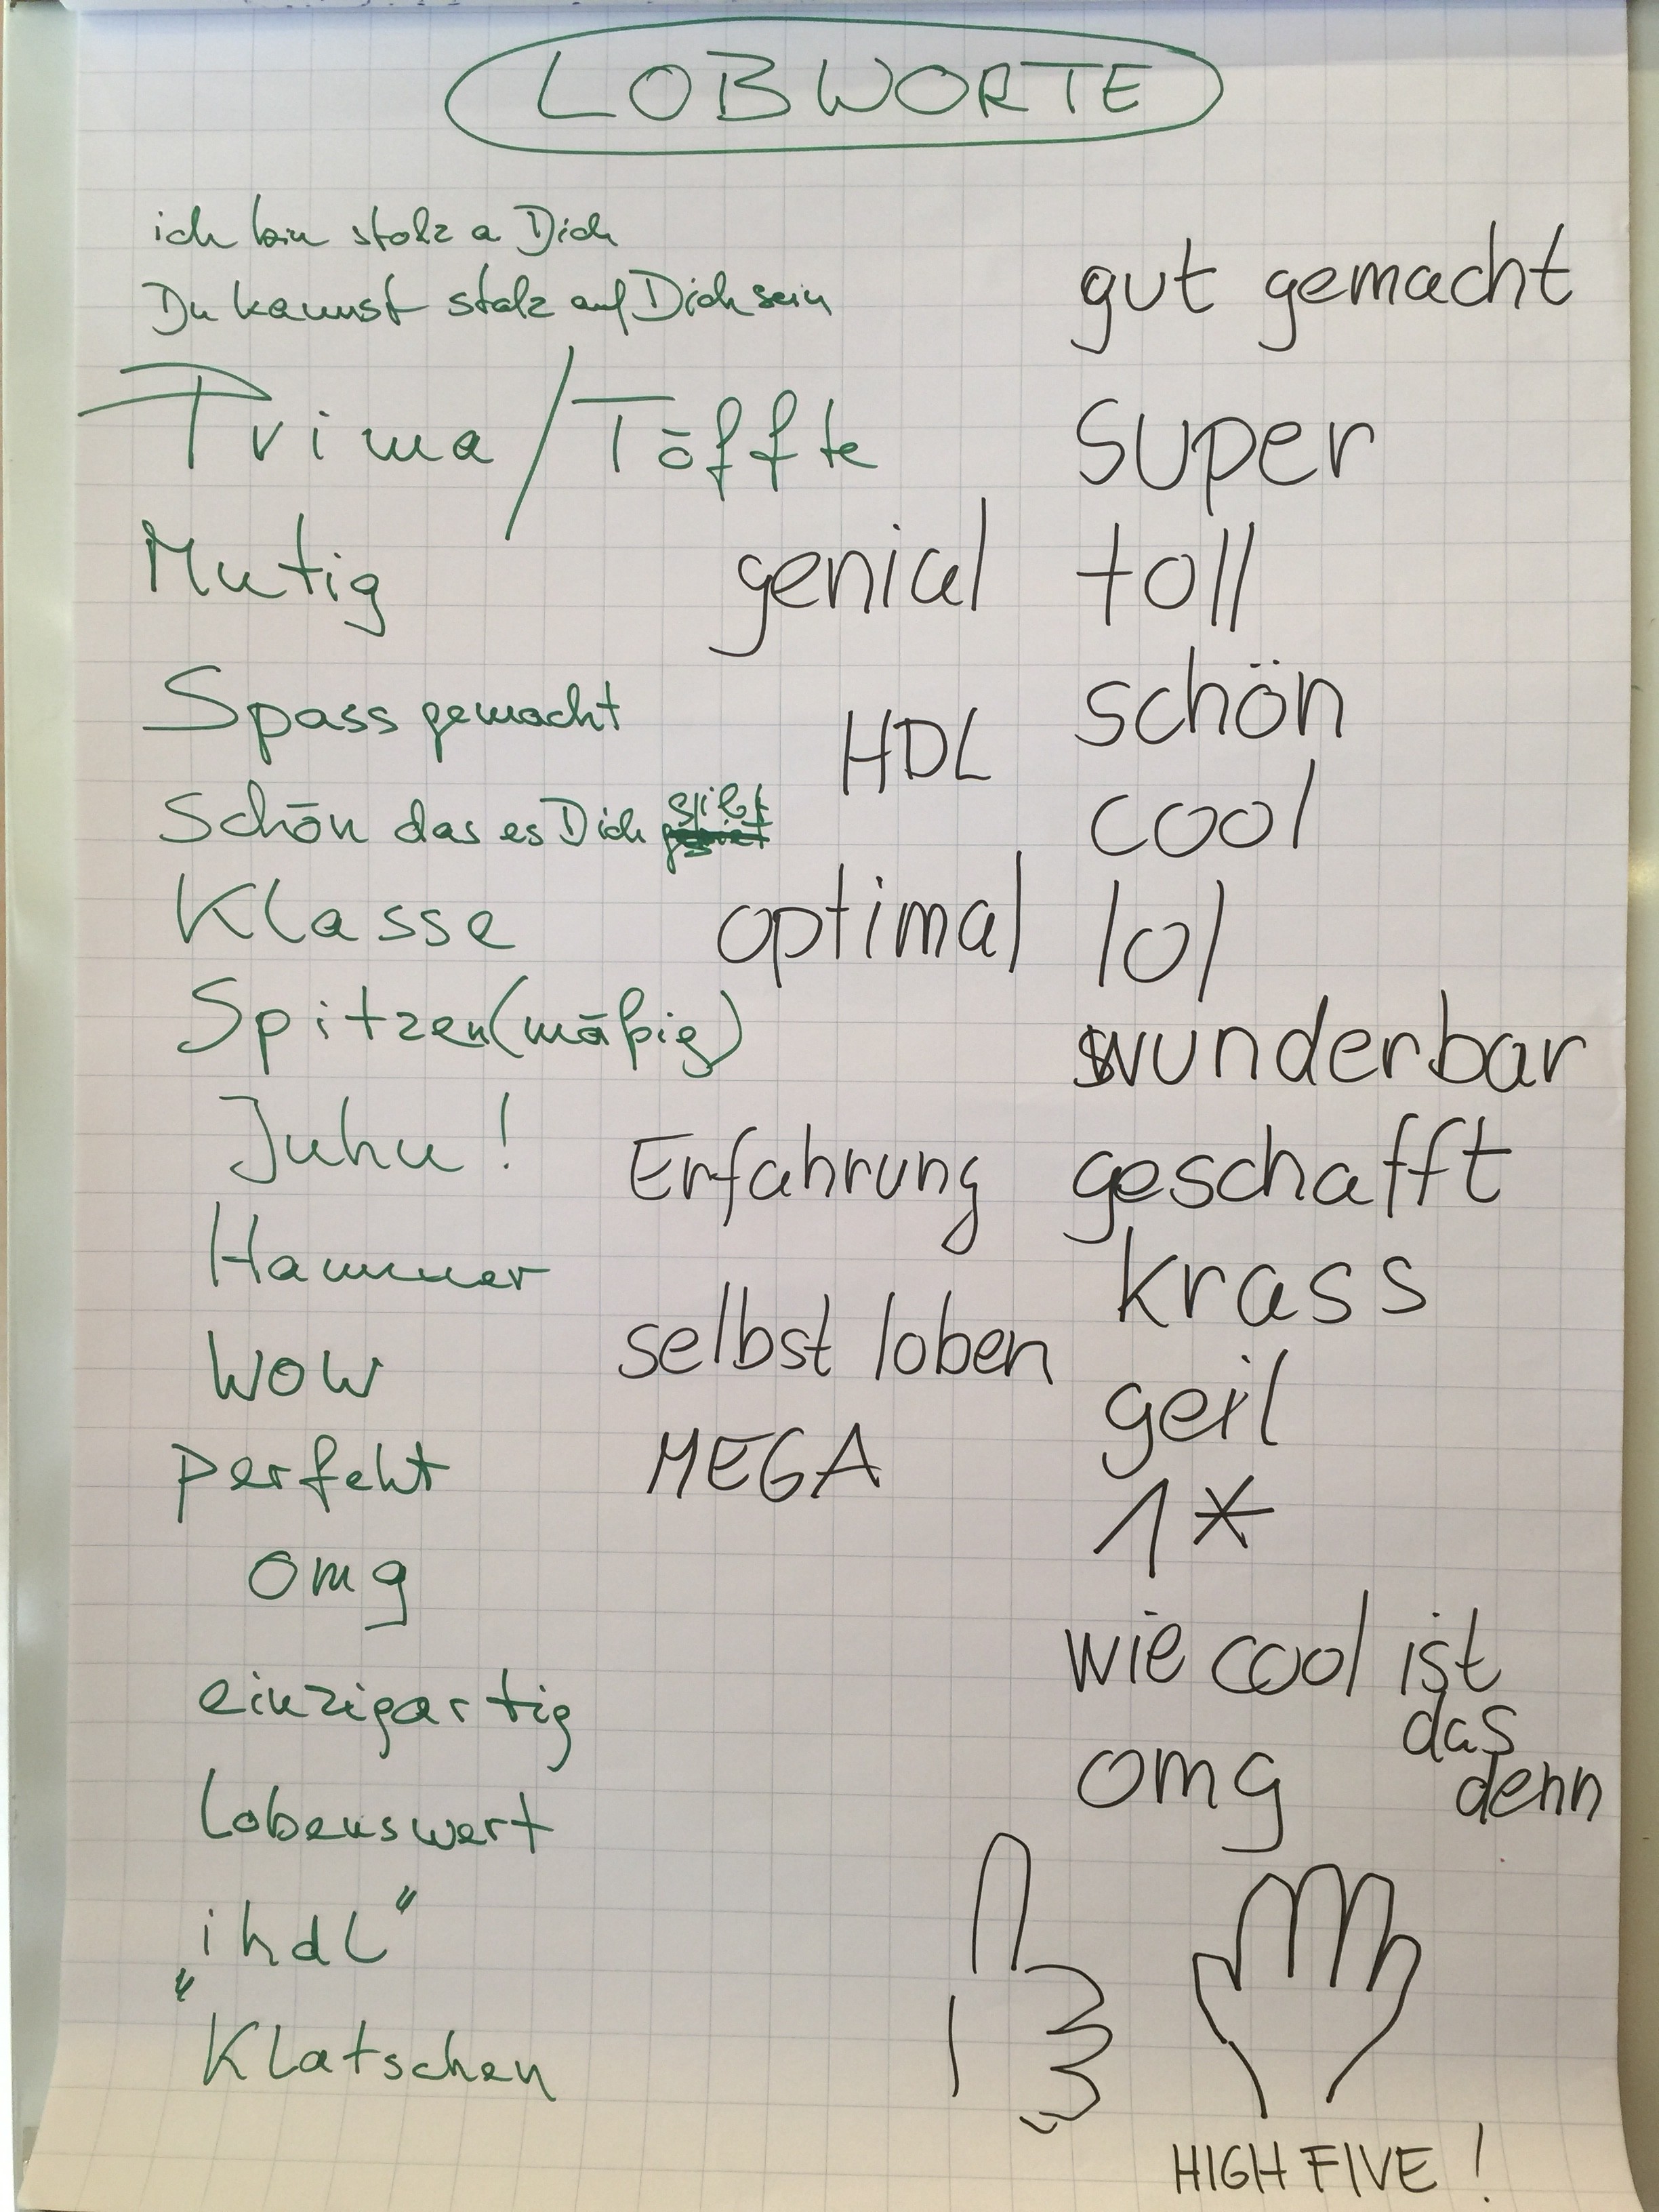 LOBWORTE
ich bin stolz a Dich
Du kannst stolz auf Dich sein
Prima / Töffte
Mutig
Spass gemacht
Schön das es Dich gibt
Klasse
Spitzen(mäßig)
Juhu!
Hammer
WOW
perfekt
omg
einzigartig
Lobenswert
„ihdl"
Klatschen
genial
HDL
optimal
Erfahrung
selbst loben
MEGA
gut gemacht
super
toll
schön
cool
lol
wunderbar
geschafft
krass
geil
1*
wie cool ist
das
denn
omg
HIGH FIVE!